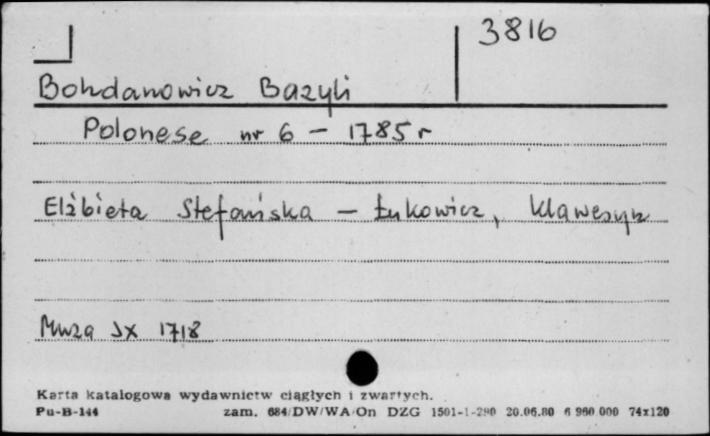 3816
Bohdanowicz Bazyli
Polonese nr 6 - 1785 r
Elżbieta Stefańska - Łukowicz, klawesyn
Muza SX 1718
Karta katalogowa wydawnictw ciągłych i zwartych.
Pu-B-144 zam. 684/DW/WA/On DZG 1501-1-280 20.06.80 6 960 000 74x120